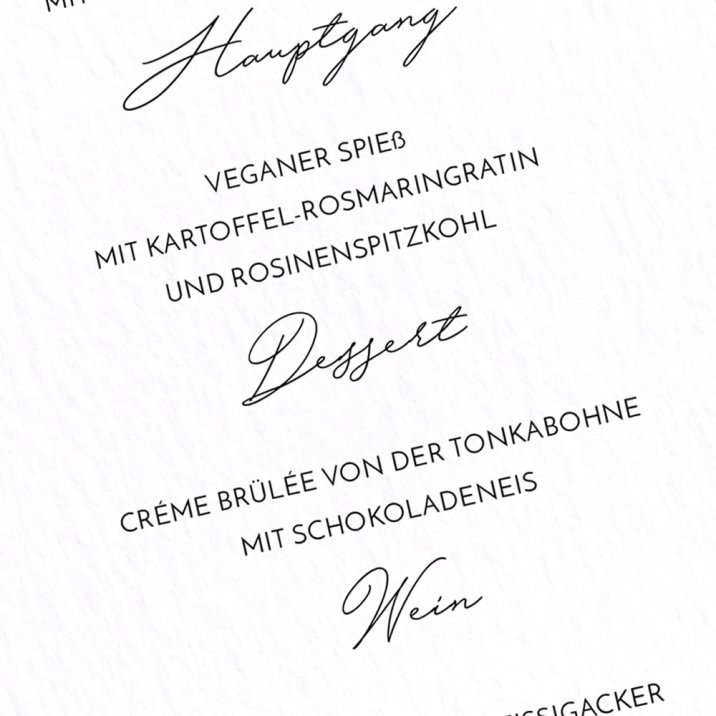 Hauptgang
VEGANER SPIEß
MIT KARTOFFEL-ROSMARINGRATIN
UND ROSINENSPITZKOHL
Dessert
CRÉME BRÜLÉE VON DER TONKABOHNE
MIT SCHOKOLADENEIS
Wein